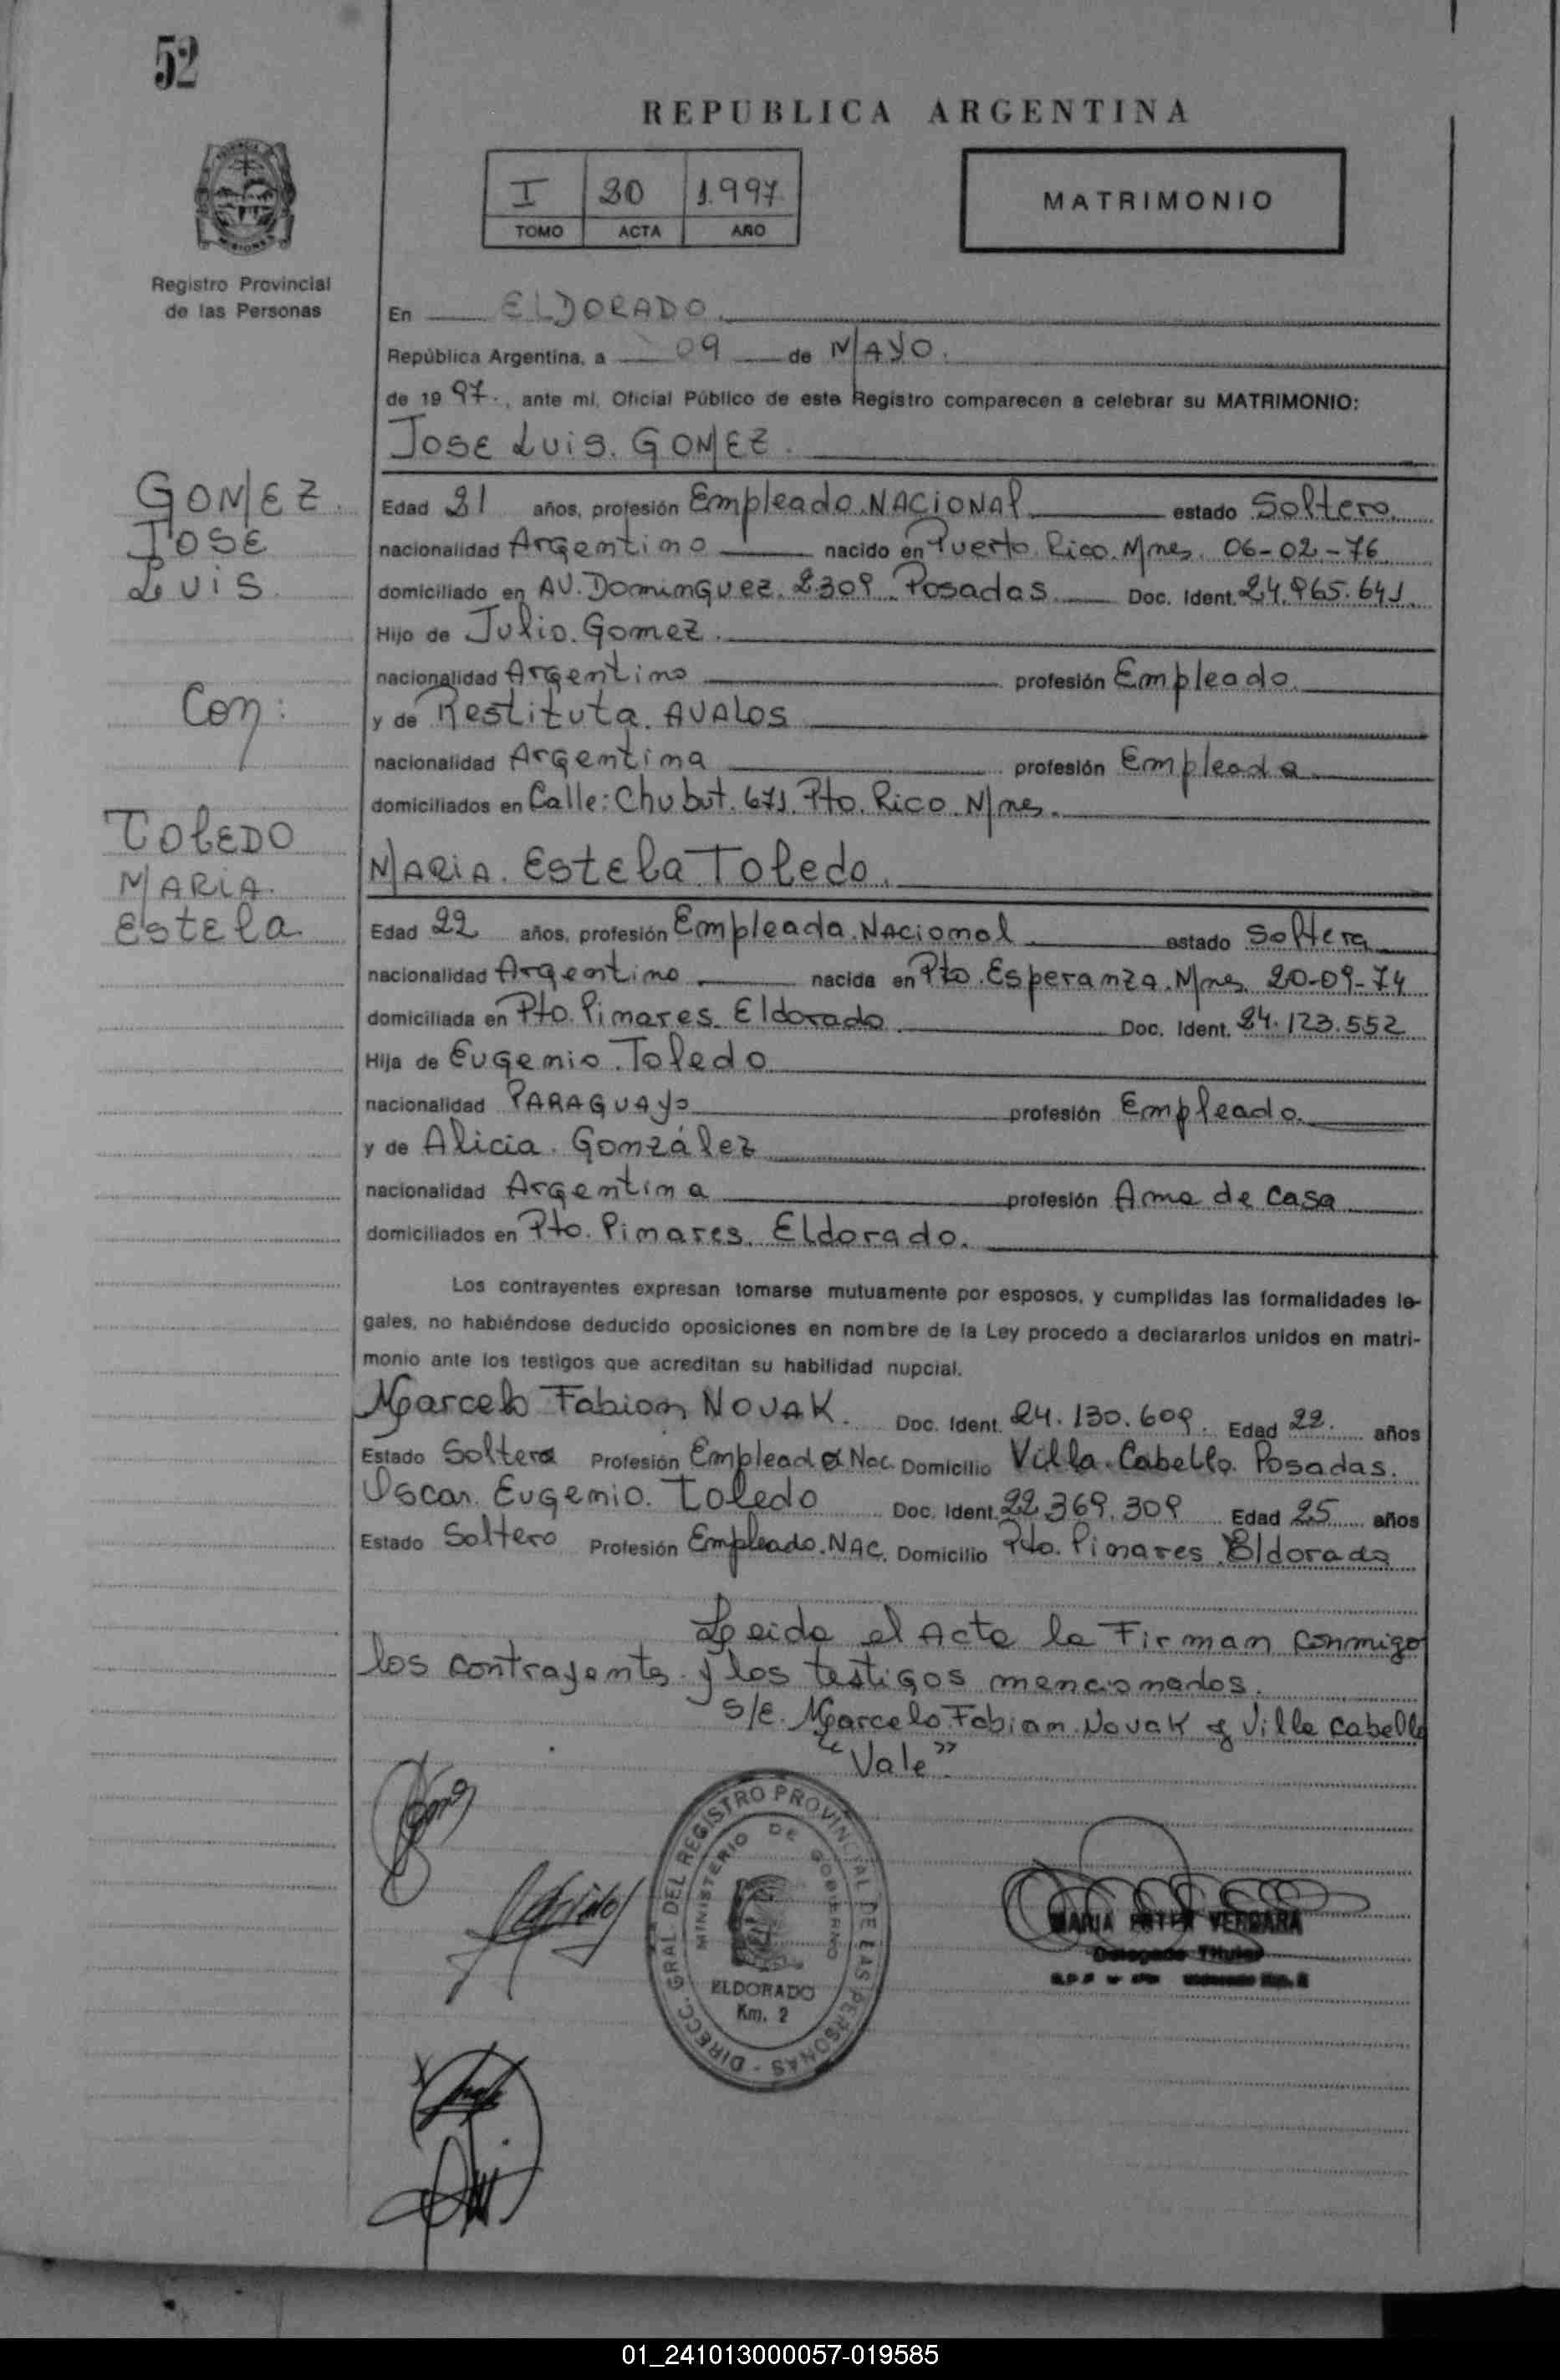 52
REPUBLICA ARGENTINA
I 30 1.997
TOMO ACTA AÑO
MATRIMONIO
Registro Provincial
de las Personas
En ELDORADO
República Argentina, a 09 de MAYO.
de 1997., ante mí, Oficial Público de este Registro comparecen a celebrar su MATRIMONIO:
JOSE LUIS. GOMEZ.
GOMEZ.
JOSE
LUIS.
Con:
TOLEDO
MARIA.
Estela
Edad 21 años, profesión Empleado. NACIONAL estado Soltero
nacionalidad Argentino nacido en Puerto Rico. Mnes. 06-02-76
domiciliado en AV. Dominguez. 2309 Posadas Doc. Ident. 24.965.641
Hijo de Julio. Gomez.
nacionalidad Argentino profesión Empleado.
y de Restituta. AVALOS
nacionalidad Argentina profesión Empleada
domiciliados en Calle: Chubut. 671. Pto. Rico. Mnes.
MARIA. Estela Toledo.
Edad 22 años, profesión Empleada. Nacional estado Soltera
nacionalidad Argentina nacida en Pto. Esperanza. Mnes. 20-09-74
domiciliada en Pto. Pinares. Eldorado Doc. Ident. 24.123.552
Hija de Eugenio. Toledo
nacionalidad PARAGUAYO profesión Empleado.
y de Alicia. González
nacionalidad Argentina profesión Ama de casa
domiciliados en Pto. Pinares. Eldorado.
Los contrayentes expresan tomarse mutuamente por esposos, y cumplidas las formalidades le-
gales, no habiéndose deducido oposiciones en nombre de la Ley procedo a declararlos unidos en matri-
monio ante los testigos que acreditan su habilidad nupcial.
Marcelo Fabian NOVAK. Doc. Ident. 24.130.609. Edad 22. años
Estado Soltero Profesión Empleado Nac. Domicilio Villa. Cabello. Posadas.
Oscar. Eugenio. Toledo Doc. Ident. 22.369.309 Edad 25 años
Estado Soltero Profesión Empleado. NAC. Domicilio Pto. Pinares Eldorado
Leida el Acta la Firman conmigo
los contrayentes y los testigos mencionados.
S/E. Marcelo. Fabian. Novak y Villa Cabello
"Vale".
DIRECC. GRAL. DEL REGISTRO PROVINCIAL DE LAS PERSONAS
MINISTERIO DE GOBIERNO
ELDORADO
Km. 2
MARIA ESTER VERGARA
Delegada Titular
01_241013000057-019585